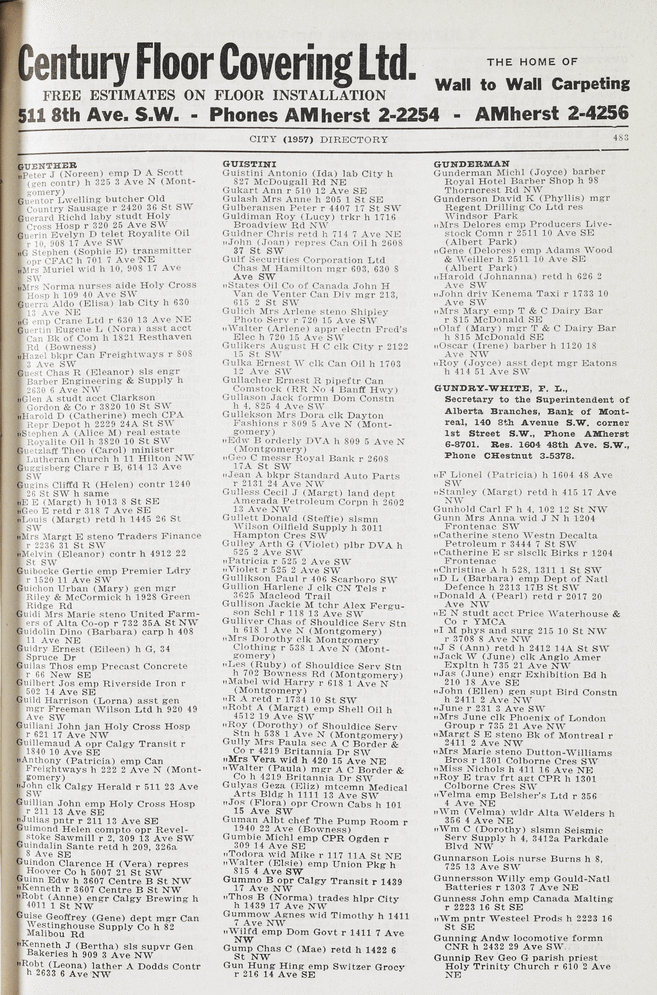 Century Floor Covering Ltd.
FREE ESTIMATES ON FLOOR INSTALLATION
THE HOME OF
Wall to Wall Carpeting
511 8th Ave. S.W. - Phones AMherst 2-2254 - AMherst 2-4256
CITY (1957) DIRECTORY
483
GUENTHER
"Peter J (Noreen) emp D A Scott
(gen contr) h 325 3 Ave N (Mont-
gomery)
Guentor Lwelling butcher Old
Country Sausage r 2420 36 St SW
Guerard Richd laby studt Holy
Cross Hosp r 320 25 Ave SW
Guerin Evelyn D telet Royalite Oil
r 10, 908 17 Ave SW
"G Stephen (Sophie E) transmitter
opr CFAC h 701 7 Ave NE
"Mrs Muriel wid h 10, 908 17 Ave
SW
"Mrs Norma nurses aide Holy Cross
Hosp h 109 40 Ave SW
Guerra Aldo (Elisa) lab City h 630
13 Ave NE
"G emp Crane Ltd r 630 13 Ave NE
Guertin Eugene L (Nora) asst acct
Can Bk of Com h 1821 Resthaven
Rd (Bowness)
"Hazel bkpr Can Freightways r 808
3 Ave SW
Guest Chas R (Eleanor) sls engr
Barber Engineering & Supply h
2630 6 Ave NW
"Glen A studt acct Clarkson
Gordon & Co r 3820 10 St SW
"Harold D (Catherine) mech CPA
Repr Depot h 2229 24A St SW
"Stephen A (Alice M) real estate
Royalite Oil h 3820 10 St SW
Guetzlaff Theo (Carol) minister
Lutheran Church h 11 Hilton NW
Guggisberg Clare r B, 614 13 Ave
SW
Gugins Cliffd R (Helen) contr 1240
26 St SW h same
"E E (Margt) h 1013 8 St SE
"Geo E retd r 318 7 Ave SE
"Louis (Margt) retd h 1445 26 St
SW
"Mrs Margt E steno Traders Finance
r 2236 31 St SW
"Melvin (Eleanor) contr h 4912 22
St SW
Guibocke Gertie emp Premier Ldry
r 1520 11 Ave SW
Guichon Urban (Mary) gen mgr
Riley & McCormick h 1928 Green
Ridge Rd
Guidi Mrs Marie steno United Farm-
ers of Alta Co-op r 732 35A St NW
Guidolin Dino (Barbara) carp h 408
11 Ave NE
Guidry Ernest (Eileen) h G, 34
Spruce Dr
Guilas Thos emp Precast Concrete
r 66 New SE
Guilbert Jos emp Riverside Iron r
502 14 Ave SE
Guild Harrison (Lorna) asst gen
mgr Freeman Wilson Ltd h 920 49
Ave SW
Guiliani John jan Holy Cross Hosp
r 621 17 Ave NW
Guillemaud A opr Calgy Transit r
1840 10 Ave SE
"Anthony (Patricia) emp Can
Freightways h 222 2 Ave N (Mont-
gomery)
"John clk Calgy Herald r 511 23 Ave
SW
Guillian John emp Holy Cross Hosp
r 211 13 Ave SE
"Julias pntr r 211 13 Ave SE
Guimond Helen compto opr Revel-
stoke Sawmill r 2, 309 13 Ave SW
Guindalin Sante retd h 209, 326a
8 Ave SE
Guindon Clarence H (Vera) repres
Hoover Co h 5007 21 St SW
Guinn Edw h 3607 Centre B St NW
"Kenneth r 3607 Centre B St NW
"Robt (Anne) engr Calgy Brewing h
4011 1 St NW
Guise Geoffrey (Gene) dept mgr Can
Westinghouse Supply Co h 82
Malibou Rd
"Kenneth J (Bertha) sls supvr Gen
Bakeries h 909 3 Ave NW
"Robt (Leona) lather A Dodds Contr
h 2633 6 Ave NW
GUISTINI
Guistini Antonio (Ida) lab City h
827 McDougall Rd NE
Gukart Ann r 510 12 Ave SE
Gulash Mrs Anne h 205 1 St SE
Gulberansen Peter r 4407 17 St SW
Guldiman Roy (Lucy) trkr h 1716
Broadview Rd NW
Guldner Chris retd h 714 7 Ave NE
"John (Joan) repres Can Oil h 2608
37 St SW
Gulf Securities Corporation Ltd
Chas M Hamilton mgr 603, 630 8
Ave SW
"States Oil Co of Canada John H
Van de Venter Can Div mgr 213,
615 2 St SW
Gulich Mrs Arlene steno Shipley
Photo Serv r 720 15 Ave SW
"Walter (Arlene) appr electn Fred's
Elec h 720 15 Ave SW
Gulikers August H C clk City r 2122
15 St SW
Gulka Ernest W clk Can Oil h 1703
12 Ave SW
Gullacher Ernest R pipeftr Can
Comstock (RR No 4 Banff Hwy)
Gullason Jack formn Dom Constn
h 4, 825 4 Ave SW
Gullekson Mrs Dora clk Dayton
Fashions r 809 5 Ave N (Mont-
gomery)
"Edw B orderly DVA h 809 5 Ave N
(Montgomery)
"Geo C messr Royal Bank r 2608
17A St SW
"Jean A bkpr Standard Auto Parts
r 2131 24 Ave NW
Gulless Cecil J (Margt) land dept
Amerada Petroleum Corpn h 2602
13 Ave NW
Gullet Donald (Steffie) slsmn
Wilson Oilfield Supply h 3011
Hampton Cres SW
Gulley Arth G (Violet) plbr DVA h
525 2 Ave SW
"Patricia r 525 2 Ave SW
"Violet r 525 2 Ave SW
Gullikson Paul r 406 Scarboro SW
Gullion Harlene J clk CN Tels r
3625 Macleod Trail
Gullison Jackie M tchr Alex Fergu-
son Schl r 118 13 Ave SW
Gulliver Chas of Shouldice Serv Stn
h 618 1 Ave N (Montgomery)
"Mrs Dorothy clk Montgomery
Clothing r 538 1 Ave N (Mont-
gomery)
"Les (Ruby) of Shouldice Serv Stn
h 702 Bowness Rd (Montgomery)
"Mabel wid Harry r 618 1 Ave N
(Montgomery)
"R A retd r 1734 10 St SW
"Robt A (Margt) emp Shell Oil h
4512 19 Ave SW
"Roy (Dorothy) of Shouldice Serv
Stn h 538 1 Ave N (Montgomery)
Gully Mrs Paula sec A C Border &
Co r 4219 Britannia Dr SW
"Mrs Vera wid h 420 15 Ave NE
"Walter (Paula) mgr A C Border &
Co h 4219 Britannia Dr SW
Gulyas Geza (Eliz) mtcemn Medical
Arts Bldg h 1111 13 Ave SW
"Jos (Flora) opr Crown Cabs h 101
15 Ave SW
Guman Albt chef The Pump Room r
1940 22 Ave (Bowness)
Gumbie Michl emp CPR Ogden r
309 14 Ave SE
"Todora wid Mike r 117 11A St NE
"Walter (Elsie) emp Union Pkg h
815 4 Ave SW
Gummo B opr Calgy Transit r 1439
17 Ave NW
"Thos B (Norma) trades hlpr City
h 1439 17 Ave NW
Gummow Agnes wid Timothy h 1411
7 Ave NW
"Wilfd emp Dom Govt r 1411 7 Ave
NW
Gump Chas C (Mae) retd h 1422 6
St NW
Gun Hung Hing emp Switzer Grocy
r 216 14 Ave SE
GUNDERMAN
Gunderman Michl (Joyce) barber
Royal Hotel Barber Shop h 98
Thorncrest Rd NW
Gunderson David K (Phyllis) mgr
Regent Drilling Co Ltd res
Windsor Park
"Mrs Delores emp Producers Live-
stock Comn r 2511 10 Ave SE
(Albert Park)
"Gene (Delores) emp Adams Wood
& Weiller h 2511 10 Ave SE
(Albert Park)
"Harold (Johanna) retd h 626 2
Ave SW
"John driv Kenema Taxi r 1733 10
Ave SW
"Mrs Mary emp T & C Dairy Bar
r 815 McDonald SE
"Olaf (Mary) mgr T & C Dairy Bar
h 815 McDonald SE
"Oscar (Irene) barber h 1120 18
Ave NW
"Roy (Joyce) asst dept mgr Eatons
h 414 51 Ave SW
GUNDRY-WHITE, F. L.,
Secretary to the Superintendent of
Alberta Branches, Bank of Mont-
real, 140 8th Avenue S.W. corner
1st Street S.W., Phone AMherst
6-8701. Res. 1604 48th Ave. S.W.,
Phone CHestnut 3-5378.
"F Lionel (Patricia) h 1604 48 Ave
SW
"Stanley (Margt) retd h 415 17 Ave
NW
Gunhold Carl F h 4, 102 12 St NW
Gunn Mrs Anna wid J N h 1204
Frontenac SW
"Catherine steno Westn Decalta
Petroleum r 3444 7 St SW
"Catherine E sr slsclk Birks r 1204
Frontenac
"Christine A h 528, 1311 1 St SW
"D L (Barbara) emp Dept of Natl
Defence h 2313 17B St SW
"Donald A (Pearl) retd r 2017 20
Ave NW
"E N studt acct Price Waterhouse &
Co r YMCA
"I M phys and surg 215 10 St NW
r 3708 8 Ave NW
"J S (Ann) retd h 2412 14A St SW
"Jack W (June) clk Anglo Amer
Expltn h 735 21 Ave NW
"Jas (June) engr Exhibition Bd h
210 18 Ave SE
"John (Ellen) gen supt Bird Constn
h 2411 2 Ave NW
"June r 231 3 Ave SW
"Mrs June clk Phoenix of London
Group r 735 21 Ave NW
"Margt S E steno Bk of Montreal r
2411 2 Ave NW
"Mrs Marie steno Dutton-Williams
Bros r 1301 Colborne Cres SW
"Miss Nichols h 411 16 Ave NW
"Roy E trav frt agt CPR h 1301
Colborne Cres SW
"Velma emp Belsher's Ltd r 356
4 Ave NE
"Wm (Velma) wldr Alta Welders h
356 4 Ave NE
"Wm C (Dorothy) slsmn Seismic
Serv Supply h 4, 3412a Parkdale
Blvd NW
Gunnarson Lois nurse Burns h 8,
725 13 Ave SW
Gunnersson Willy emp Gould-Natl
Batteries r 1303 7 Ave NE
Gunness John emp Canada Malting
r 2223 16 St SE
"Wm pntr Westeel Prods h 2223 16
St SE
Gunning Andw locomotive formn
CNR h 2432 29 Ave SW
Gunnip Rev Geo G parish priest
Holy Trinity Church r 610 2 Ave
NE